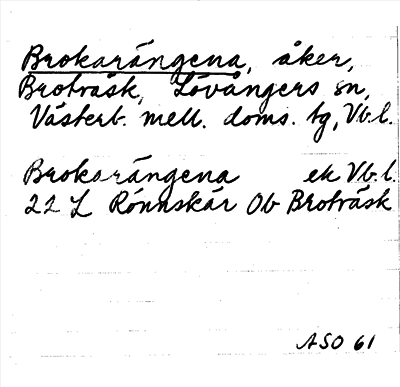 Brokarängena, åker,
Broträsk, Lövångers sn,
Västerb. mell. doms. tg, Vb.l.
Brokarängena ek Vb.l.
22 L Rönnskär Ob Broträsk
ASO 61